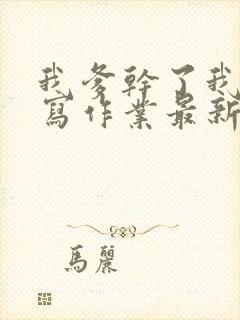 我爹幹了我
寫作業最新
馬麗